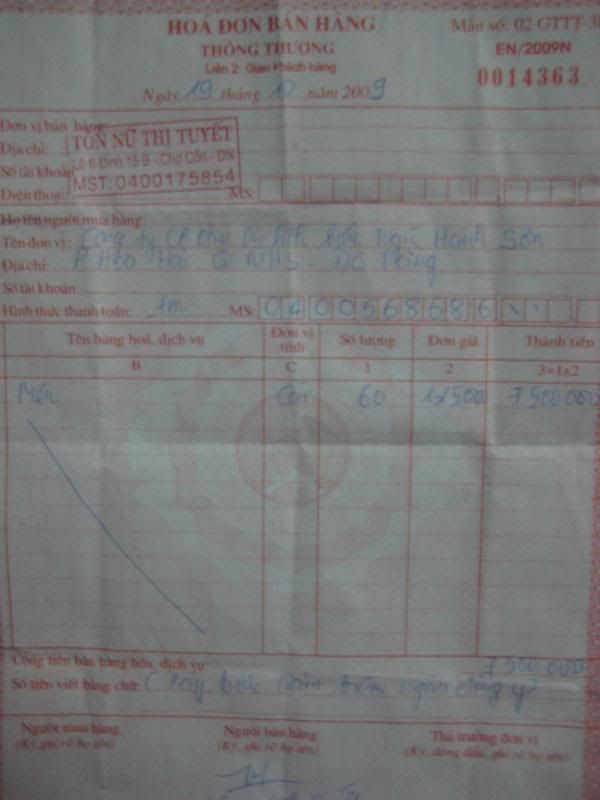 HOÁ ĐƠN BÁN HÀNG
THÔNG THƯỜNG
Liên 2: Giao khách hàng
Ngày 19 tháng 10 năm 2009
Mẫu số: 02 GTTT-3
EN/2009N
0014363
Đơn vị bán hàng:
Địa chỉ:
Số tài khoản
Điện thoại: MS:
TÔN NỮ THỊ TUYẾT
Lô 6 Đình 15 B - Chợ Cồn - ĐN
MST: 0400175854
Họ tên người mua hàng:
Tên đơn vị: Công ty CP Du lịch Ngũ Hành Sơn
Địa chỉ: P Hoà Hải Q NHS - Đà Nẵng
Số tài khoản:
Hình thức thanh toán: tm MS: 0400568686
Tên hàng hoá, dịch vụ Đơn vị tính Số lượng Đơn giá Thành tiền
B C 1 2 3=1x2
Mền Cái 60 125000 7500000
Cộng tiền bán hàng hóa, dịch vụ: 7500000
Số tiền viết bằng chữ: ( Bảy triệu năm trăm ngàn đồng y)
Người mua hàng Người bán hàng Thủ trưởng đơn vị
(Ký, ghi rõ họ tên) (Ký, ghi rõ họ tên) (Ký, đóng dấu, ghi rõ họ tên)